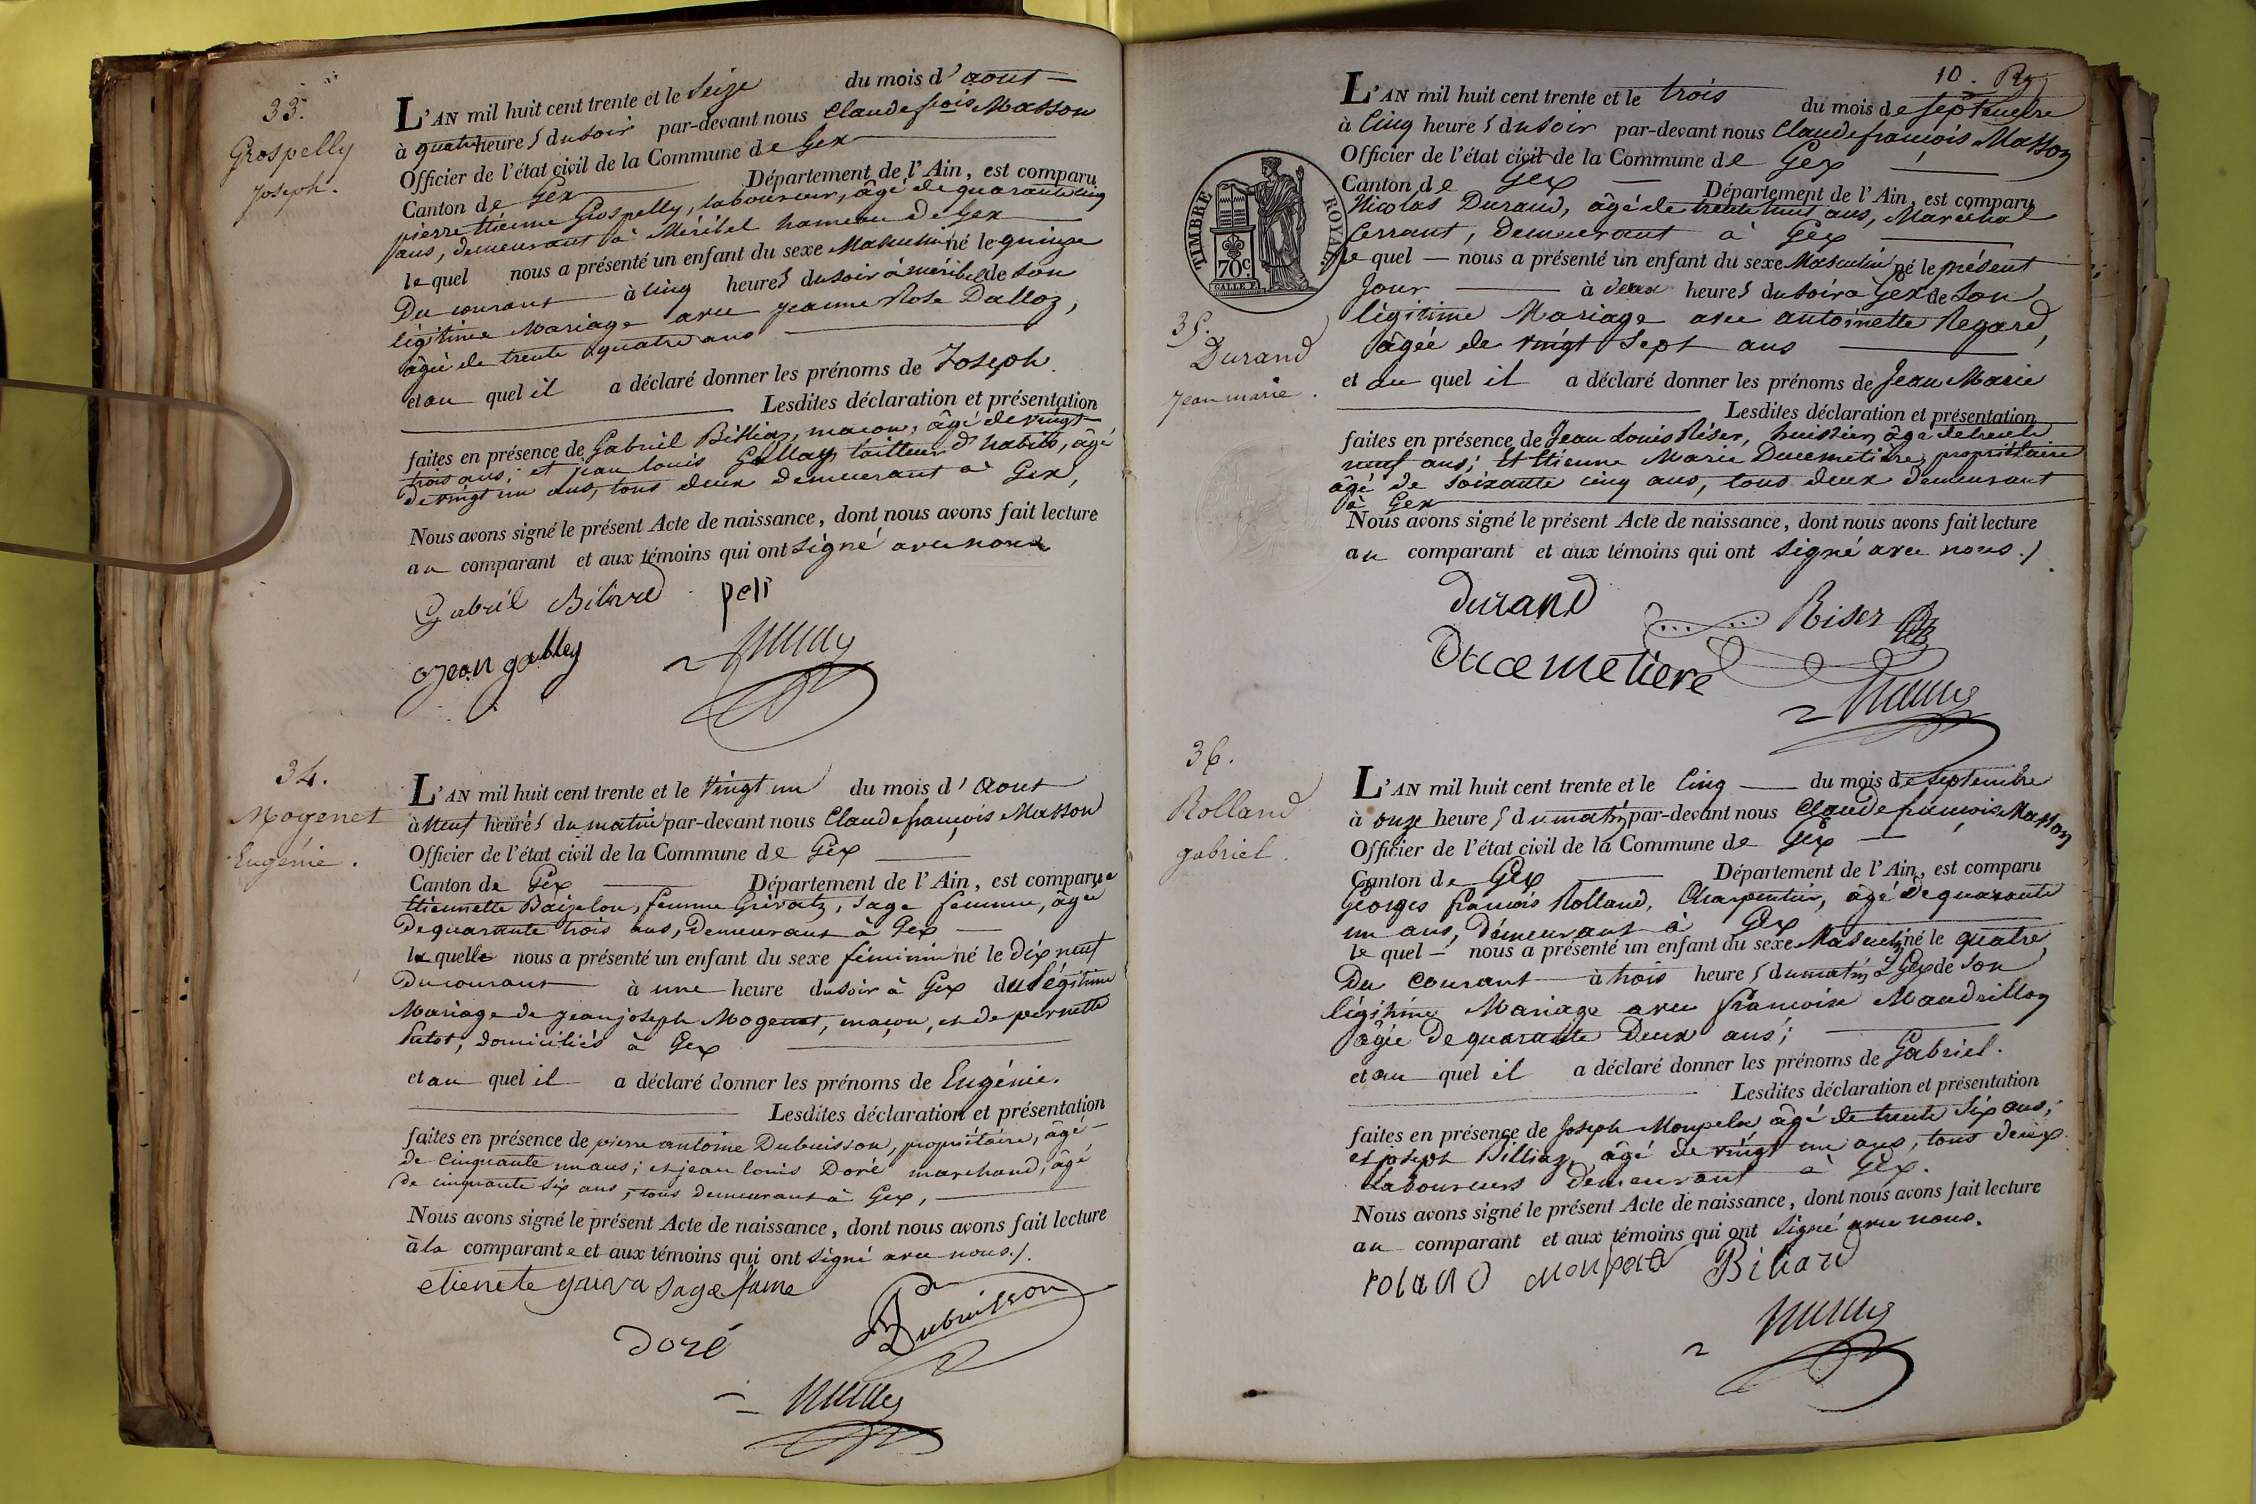 33.
Grospelly
Joseph.
L'AN mil huit cent trente et le Seize du mois d'aout
à quatre heures du soir par-devant nous Claude fçois Masson
Officier de l'état civil de la Commune de Gex
Canton de Gex Département de l'Ain, est comparu
pierre Etienne Grospelly, laboureur, âgé de quarante cinq
ans, demeurant à Méribel hameau de Gex
le quel nous a présenté un enfant du sexe Masculin né le quinze
Du courant à cinq heures du soir à méribel de son
légitime Mariage avec Jeanne Rose Dalloz,
âgée de trente quatre ans
et au quel il a déclaré donner les prénoms de Joseph.
Lesdites déclaration et présentation
faites en présence de Gabriel Billiaz, maçon, âgé de vingt
trois ans; et jean louis Gallay, tailleur d'habits, âgé
de vingt un ans, tous deux demeurant à Gex,
Nous avons signé le présent Acte de naissance, dont nous avons fait lecture
au comparant et aux témoins qui ont signé avec nous
Gabriel Biliard peli
Jean galley
34.
Mogenet
Eugénie.
L'AN mil huit cent trente et le Vingt un du mois d'Aout
à Neuf heures du matin par-devant nous Claude françois Masson
Officier de l'état civil de la Commune de Gex
Canton de Gex Département de l'Ain, est comparue
Etiennette Baizelon, femme Grivatz, Sage femme, âgée
De quarante trois ans, Demeurant à Gex
la quelle nous a présenté un enfant du sexe féminin né le dix neuf
Du courant à une heure du soir à Gex du légitime
Mariage de jean joseph Mogenet, maçon, et de pernette
Putot, domiciliés à Gex
et au quel il a déclaré donner les prénoms de Eugénie.
Lesdites déclaration et présentation
faites en présence de pierre antoine Dubuisson, propriétaire, âgé
de Cinquante un ans; et jean louis Doré marchand, âgé
de cinquante six ans, tous demeurant à Gex,
Nous avons signé le présent Acte de naissance, dont nous avons fait lecture
à la comparante et aux témoins qui ont signé avec nous./.
etienete griva sage fame
Dubuisson
Doré
10.
TIMBRE ROYAL
70c
35.
Durand
Jean marie.
L'AN mil huit cent trente et le trois du mois de septembre
à Cinq heures du soir par-devant nous Claude françois Masson
Officier de l'état civil de la Commune de Gex
Canton de Gex Département de l'Ain, est comparu
Nicolas Durand, âgé de trente huit ans, Maréchal
ferrant, demeurant à Gex
le quel nous a présenté un enfant du sexe Masculin né le présent
Jour à deux heures du soir à Gex de son
légitime Mariage avec antoinette Regard,
âgée de vingt sept ans
et au quel il a déclaré donner les prénoms de Jean Marie
Lesdites déclaration et présentation
faites en présence de Jean Louis Riser, huissier, âgé de trente
neuf ans; Et Etienne Marie Ducimetière, propriétaire
âgé de Soixante cinq ans, tous deux demeurant
à Gex
Nous avons signé le présent Acte de naissance, dont nous avons fait lecture
au comparant et aux témoins qui ont signé avec nous./.
Durand Riser
Ducemetiere
36.
Rolland
gabriel.
L'AN mil huit cent trente et le Cinq du mois de septembre
à onze heures du matin par-devant nous Claude françois Masson
Officier de l'état civil de la Commune de Gex
Canton de Gex Département de l'Ain, est comparu
Georges francois Rolland, Charpentier, âgé de quarante
un ans, Demeurant à Gex
le quel nous a présenté un enfant du sexe Masculin né le quatre
Du courant à trois heures du matin à Gex de son
légitime Mariage avec francoise Mandrillon
âgée De quarante Deux ans;
et au quel il a déclaré donner les prénoms de Gabriel.
Lesdites déclaration et présentation
faites en présence de Joseph Monpela âgé de trente six ans;
et joseph Billiaz, âgé de vingt un ans, tous deux
Laboureurs demeurant à Gex.
Nous avons signé le présent Acte de naissance, dont nous avons fait lecture
au comparant et aux témoins qui ont signé avec nous.
roland Monpela Biliard